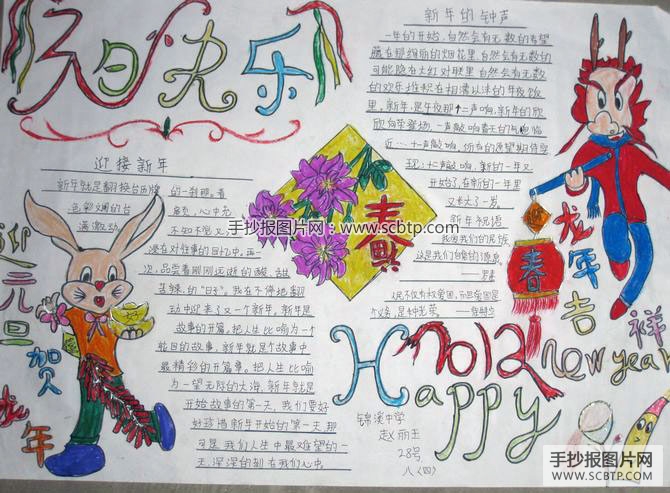 庆日快乐
新年的钟声
一年的开始,自然会有无数的希望
藏在那绚丽的烟花里,自然会有无数的
可能隐在大红对联里,自然会有无数
的欢乐堆积在相满从沫的年夜饭
里。新年,是午夜那一声响,新年的欣
欣向荣登场,一声敲响春天的
近…十一声敲响,你我的愿望期待实
现;十二敲响,新的一年又
开始了,在新的一年里
又长大了一岁
新年祝语
我因我们的民族
这是我们自信的源泉
迎接新年
新年就是翻换台历牌的一刹那,看
色彩斓的台
心中充
满激动
不知不觉又
浸在对往事的回忆中,再一
次,品尝着刚刚远逝的酸、甜
苦辣,的“日子”。我在不停地翻
动中迎来了又一个新年。新年是
故事的开篇,把人生比喻为一个
能目的故事,新年就是个故事中
最精彩的开篇章。把人生比喻
为一望无际的大海,新年就是
开始故事的第一天,我们要好
好珍惜新年开始的第一天,那
可是我们人生中最又难望的一
天,深深的刻在我们心中。
迎元旦
贺龙年
春
春
龙年吉祥
2012
Happy
new year
锦溪中学
赵丽王
28号
八(四)
手抄报图片网:www.scbtp.com
手抄报图片网
WWW.SCBTP.COM